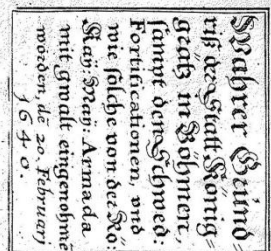 Wahrer Grund=
riß der Statt König=
grätz in Böhmen,
sampt den Schwed:
Fortificationen, und
wie solche von der Rö:
Kaÿ: Maÿ: Armada
mit gwalt eingenohmē
worden, dē 20. Februarij
1640.